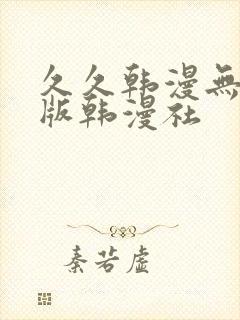 久久韩漫無
版韩漫社
秦若虚